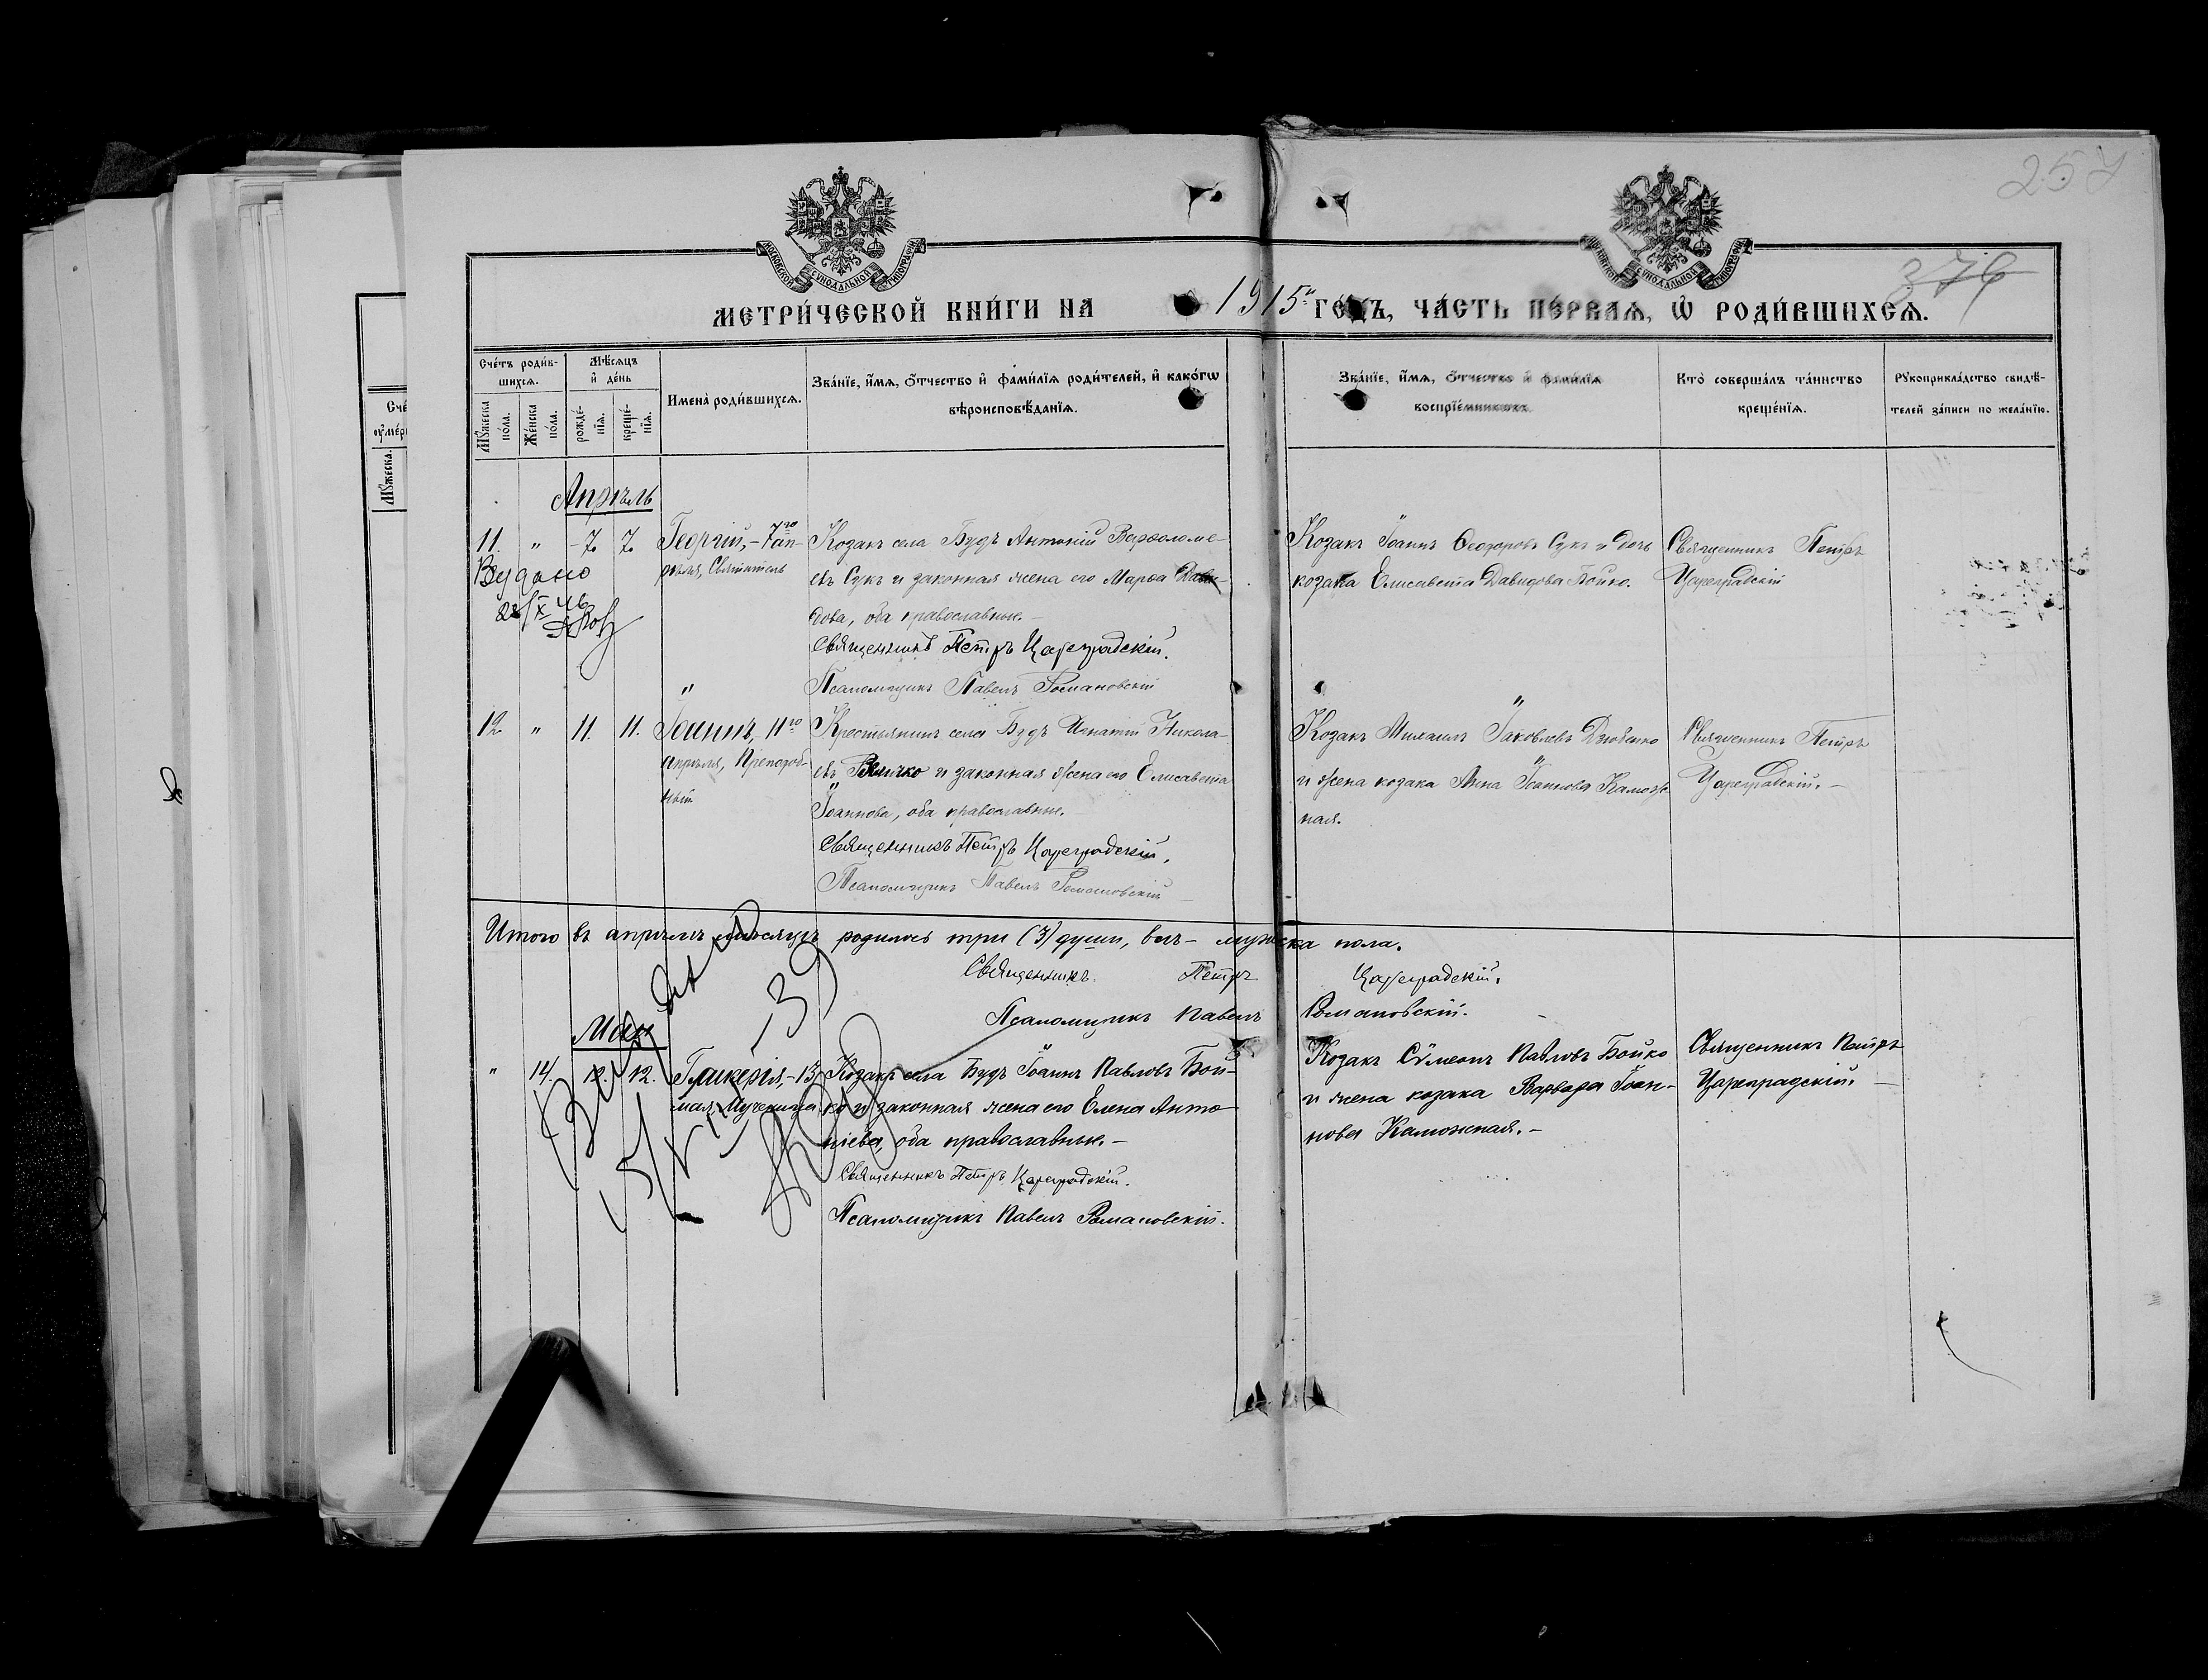 257
376
МОСКОВСКОЙ СУНОДАЛЬНОЙ ТИПОГРАФІИ
МОСКОВСКОЙ СУНОДАЛЬНОЙ ТИПОГРАФІИ
МЕТРИ́ЧЕСКОЙ КНИ́ГИ НА 1915й ГО́ДЪ, ЧА́СТЬ ПЕ́РВАѦ, Ѡ РОДИ́ВШИХСѦ.
Сче́тъ роди́в-
шихсѧ.
Мꙋ́жеска по́ла.
Же́нска по́ла.
Мѣ́сѧцъ
и де́нь
рожде́-
нїѧ.
креще́-
нїѧ.
Имена̀ роди́вшихсѧ.
Зва́нїе, и́мѧ, о́тчество и фами́лїѧ роди́телей, и како́гѡ
вѣроисповѣ́данїѧ.
Зва́нїе, и́мѧ, о́тчество и фами́лїѧ
воспрїе́мникѡвъ.
Кто̀ соверша́лъ та́инство
креще́нїѧ.
Рꙋкоприкла́дство свидѣ́-
телей за́писи по жела́нїю.
Апрѣль
11. " 7. 7. Георгій, - 7го ап-
рѣля, Святитель
Видано
Козакъ села Будъ Антоній Варѳоломе-
евъ Сукъ и законная жена его Марѳа Дави-
дова, оба православные.
Священникъ Петръ Цареградскій.
Псаломщикъ Павелъ Романовскій
Козакъ Іоаннъ Ѳеодоровъ Сукъ и дочь
козака Елисавета Давидова Бойко.
Священникъ Петръ
Цареградскій
12. " 11. 11. Іоаннъ, 11го
апрѣля, Преподоб-
ный
Крестьянинъ села Будъ Игнатій Никола-
евъ Величко и законная жена его Елисавета
Іоаннова, оба православные.
Священникъ Петръ Цареградскій.
Псаломщикъ Павелъ Романовскій
Козакъ Михаилъ Іаковлевъ Дзюбенко
и жена козака Анна Іоаннова Калюж-
ная.
Священникъ Петръ
Цареградскій. —
Итого въ апрѣлѣ мѣсяцѣ родилось три (3) души, всѣ - мужеска пола.
Священникъ Петръ Цареградскій.
Псаломщикъ Павелъ Романовскій.
Май
" 14. 12. 12. Гликерія, - 13
мая, Мученица
Козакъ села Будъ Іоаннъ Павловъ Бой-
ко и законная жена его Елена Анто-
ніева, оба православные. —
Священникъ Петръ Цареградскій.
Псаломщикъ Павелъ Романовскій.
Козакъ Сѵмеонъ Павловъ Бойко
и жена козака Варвара Іоан-
нова Калюжная. —
Священникъ Петръ
Цареградскій. —